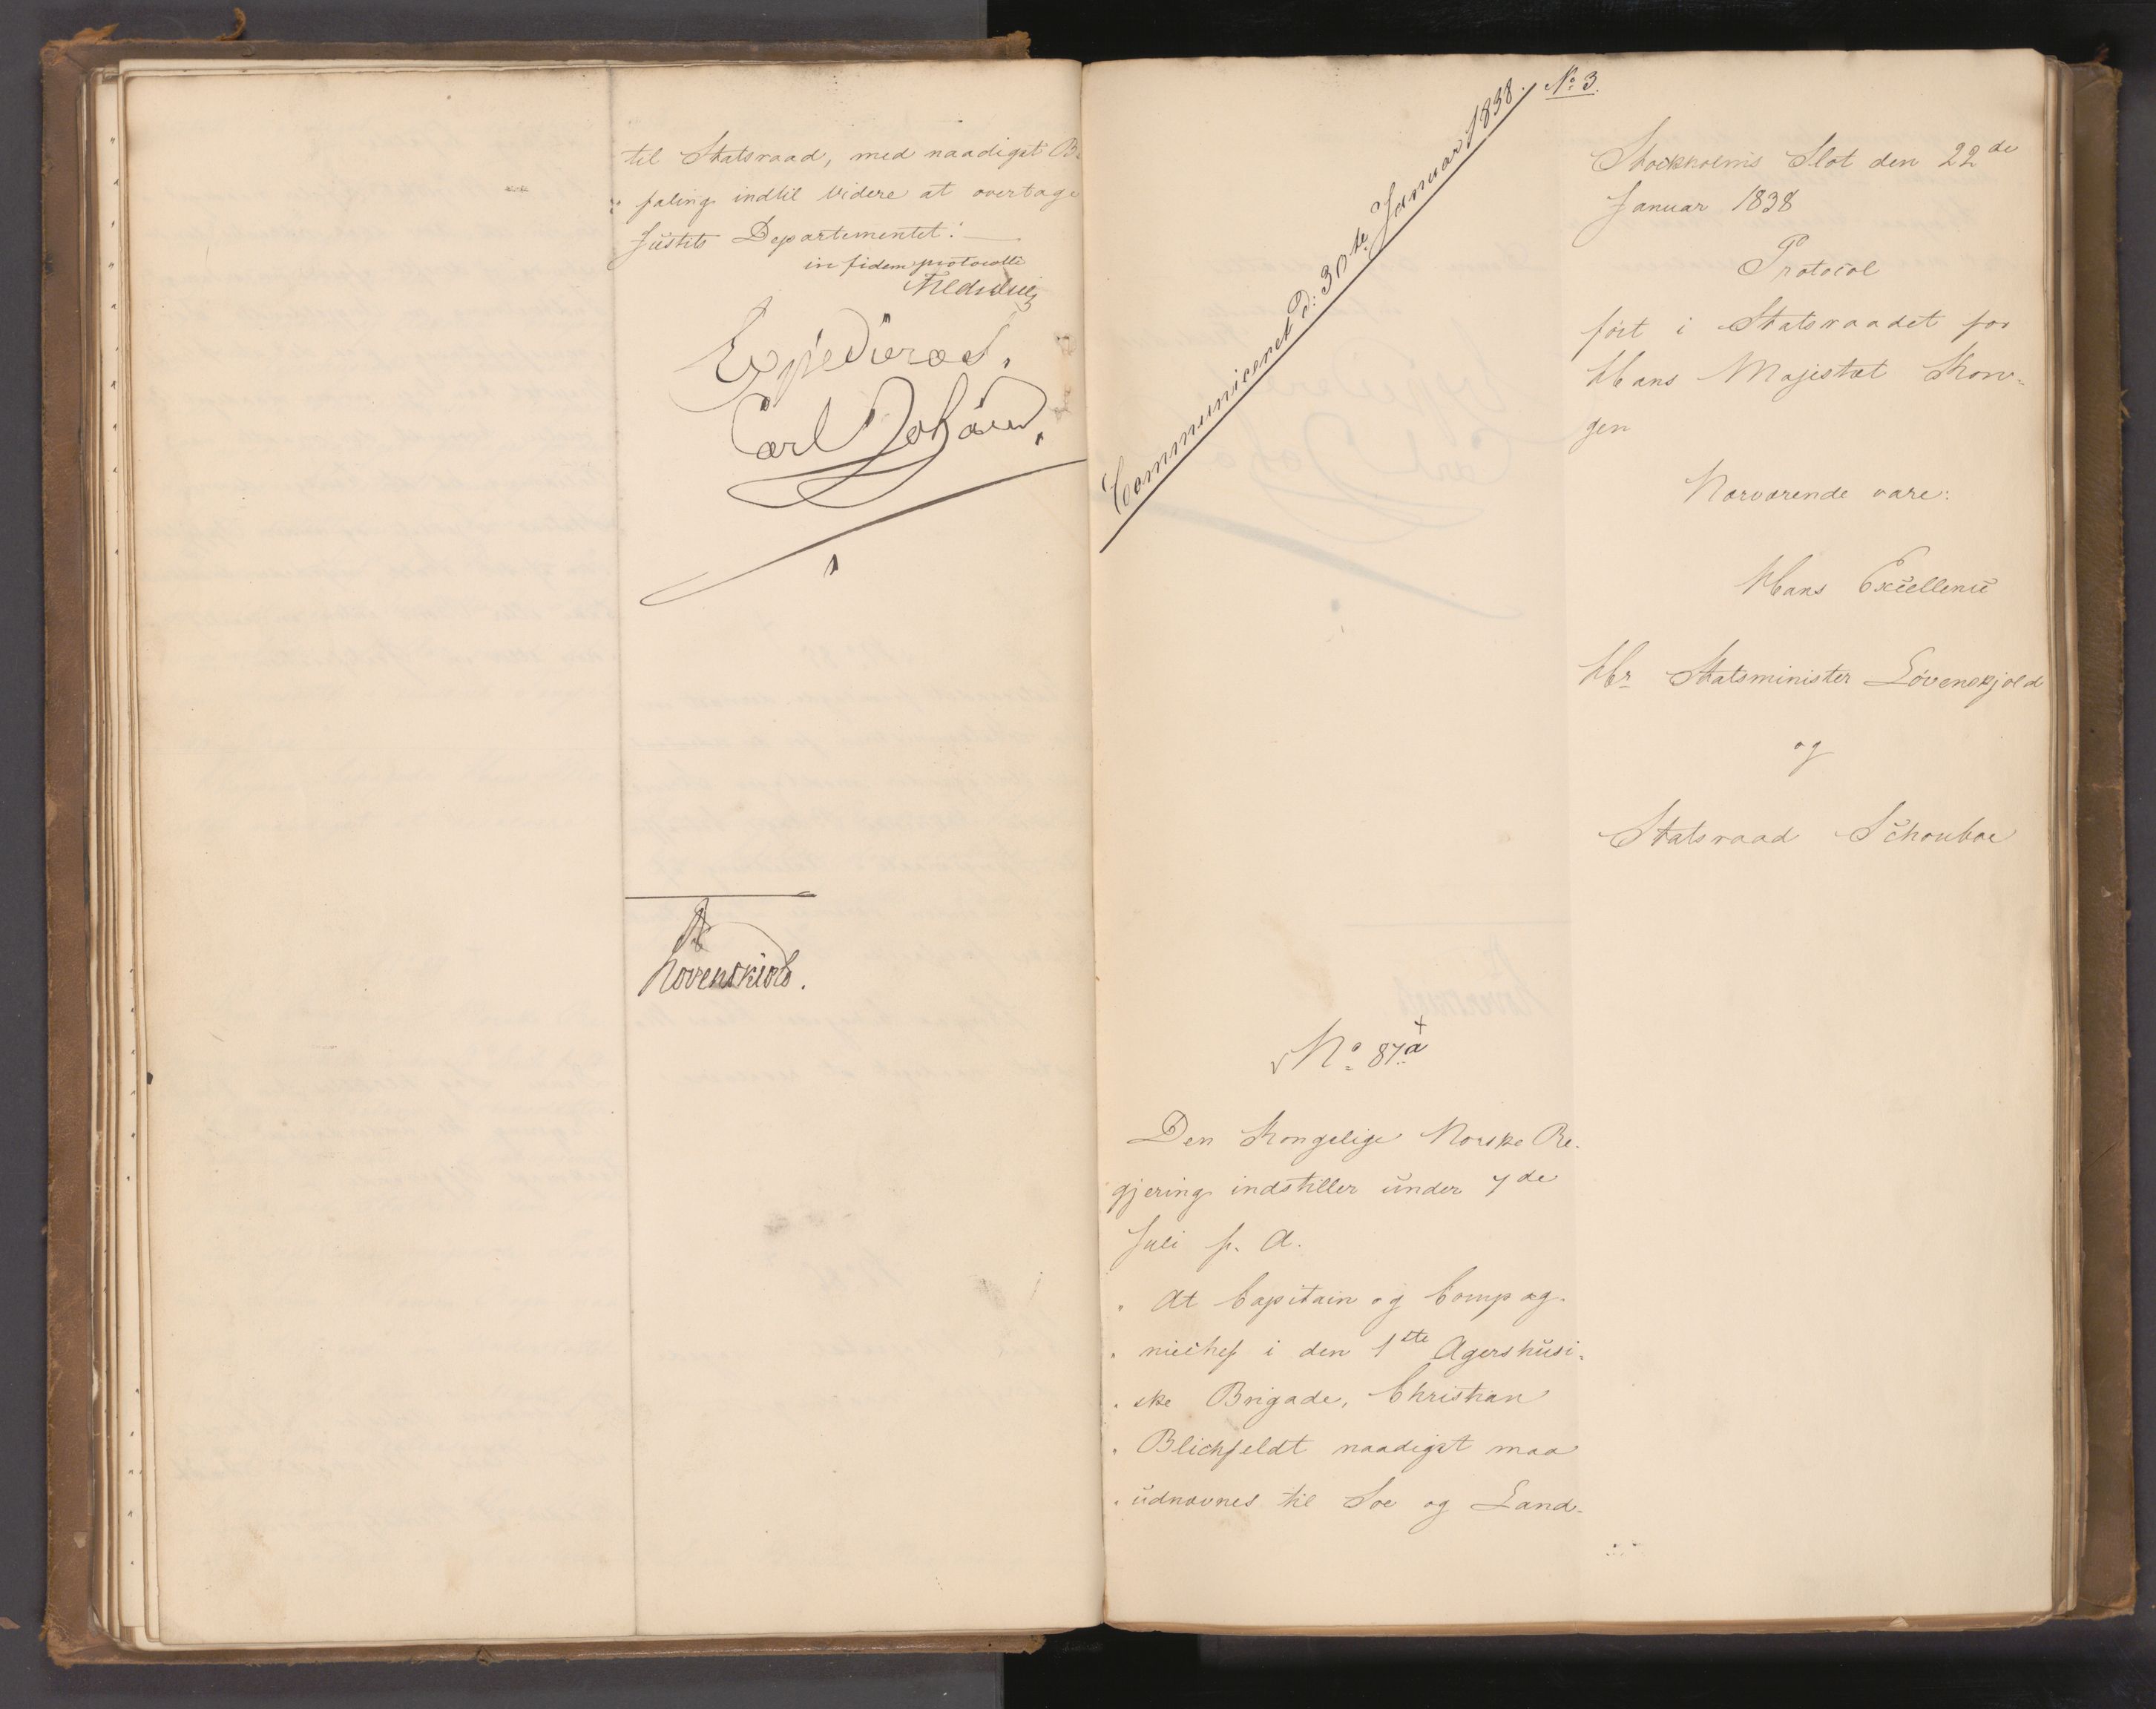 til Statsraad, med naadigst Be
" faling indtil Videre at overtage
Justits Departementet!
in fidem protocolli
Expederas.
Carl Johan
Løvenskiold.
Communiceret d: 30te Januar 1838.
No 3.
Stockholms Slot den 22de
Januar 1838
Protocol
ført i Statsraadet for
Hans Majestæt Kon-
gen
Nærværende vare:
Hans Excellence
Hr Statsminister Løvenskjold
og
Statsraad Schouboe
No 87a
Den Kongelige Norske Re-
gjering indstiller under 7de
Juli f. A.
" At Capitain og Compag-
" niechef i den 1ste Agershusi-
" ske Brigade, Christian
" Blichfeldt naadigst maa
" udnævnes til Soe og Land-